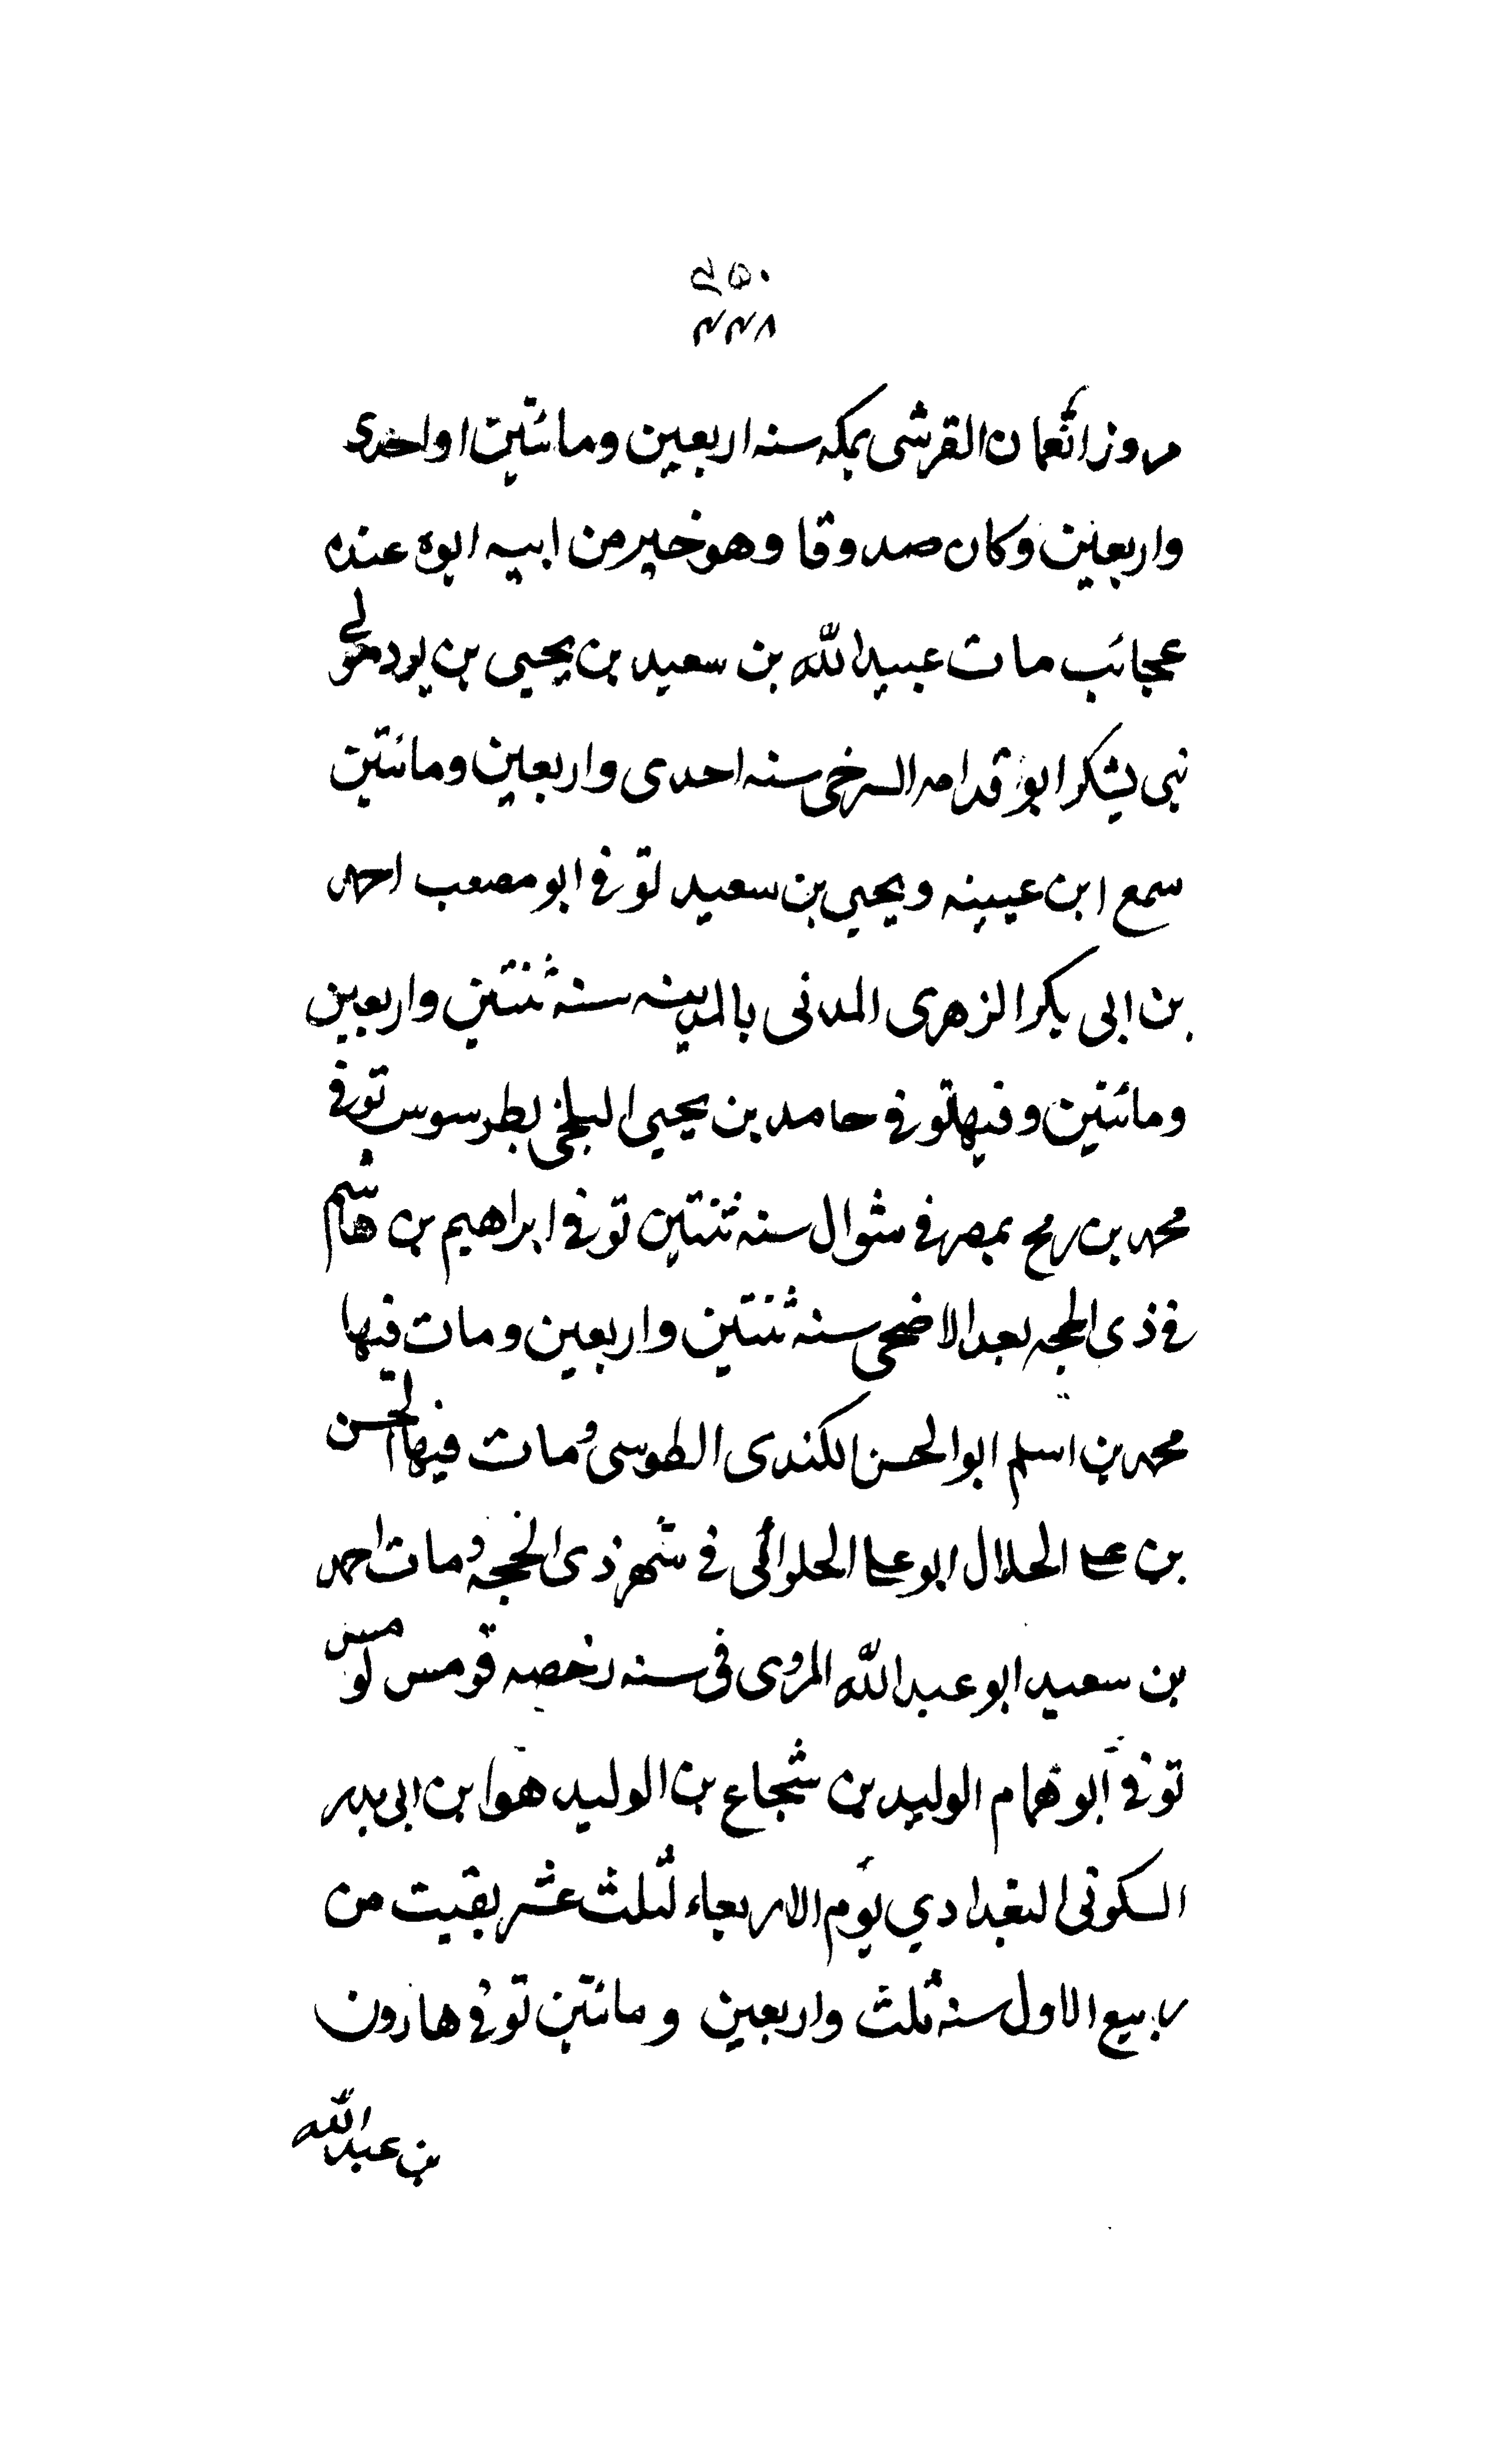 ۲۵۰
۲۲۸
مروز اثعمان القرشى بمكه سنه اربعين ومائتين او احدى
واربعين وكان صدوقا وهو خير من ابيه ابوه عنده
عجائب مات عبيد الله بن سعيد بن يحيى بن برد مولى
نبى يشكر ابو قدامه السرخى سنه احدى واربعين ومائتين
سمع ابن عيينه ويحيى بن سعيد توفى ابو مصعب احمد
بن ابى بكر الزهرى المدنى بالمدينه سنه ثنتين واربعين
ومائتين وفيها توفى حامد بن يحيى البلخى بطرسوس توفى
محمد بن رمح بمصر فى شوال سنه ثنتين توفى ابراهيم بن هاشم
فى ذى الحجه بعد الاضحى سنه ثنتين واربعين ومات فيها
محمد بن اسلم ابو الحسن الكندى الطوسى ومات فيها الحسن
بن على الحلال ابو على الحلوائى فى شهر ذى الحجه ومات احمد
بن سعيد ابو عبد الله المروى فى سنه رخصه قومس لومس
توفى ابو همام الوليد بن شجاع بن الوليد هو ابن ابى بدر
السكونى البغدادي يوم الاربعاء لثلث عشر بقيت من
ربيع الاول سنه ثلث واربعين ومائتين توفى هارون
بن عبد الله